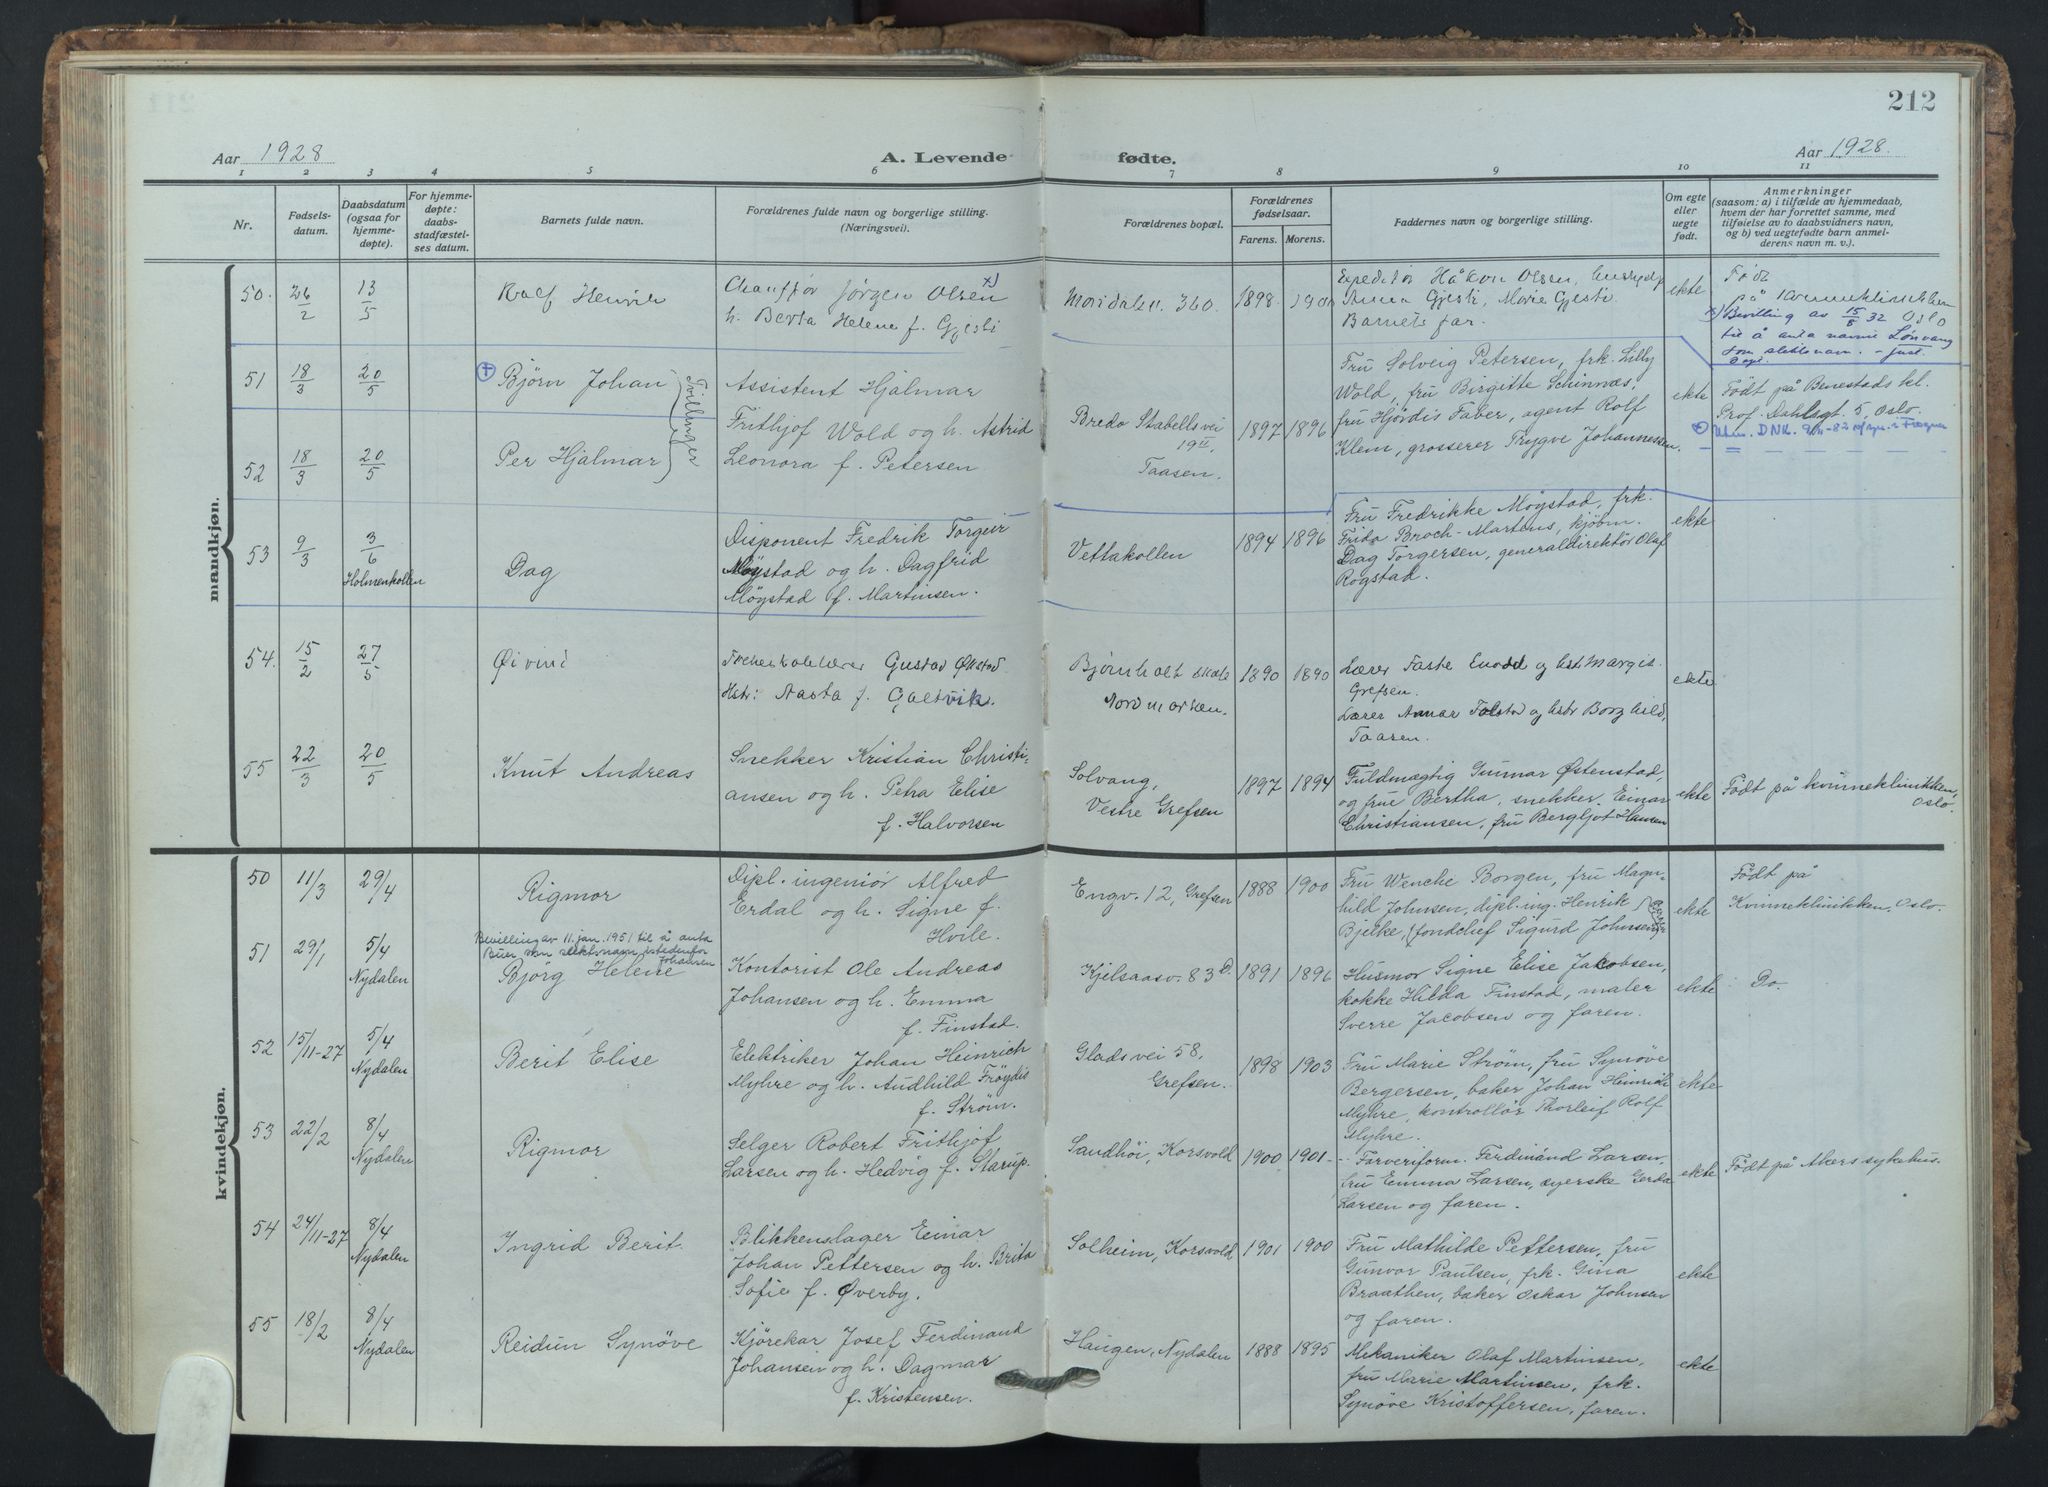 212
Aar 1928
A. Levende fødte.
Aar 1928.
1 2 3 4 5 6 7 8 9 10 11
Nr.
Fødsels-
datum.
Daabsdatum
(ogsaa for
hjemme-
døpte).
For hjemme-
døpte:
daabs-
stadfæstel-
ses datum.
Barnets fulde navn.
Forældrenes fulde navn og borgerlige stilling.
(Næringsvei).
Forældrenes bopæl.
Forældrenes
fødselsaar.
Farens. Morens.
Faddernes navn og borgerlige stilling.
Om egte
eller
uegte
født.
Anmerkninger
(saasom: a) i tilfælde av hjemmedaab,
hvem der har forrettet samme, med
tilføielse av to daabsvidners navn,
og b) ved uegtefødte barn anmel-
derens navn m. v.).
mandkjøn.
50. 26/2 13/5
Rolf Henrik
Chauffør Jørgen Olsen x)
h. Berta Helene f. Gjesti
Maridalsv. 360.
1898. 1900
Expeditør Håkon Olsen,
Anna Gjesti, Marie Gjesti.
Barnets far.
ekte
Født
på Kvinneklinikken
Oslo
x) Bevilling av 15/8 32
til å anta navnet Lønvang
som slektsnavn. - Just.
Dept.
51 18/3 20/5
Bjørn Johan
Tvillinger
Assistent Hjalmar
Frithjof Wold og h. Astrid
Leonora f. Petersen
Bredo Stabells vei
19 II,
Taasen.
1897 1896
Fru Solveig Petersen, frk. Lilly
Wold, fru Birgitte Schinnæs,
fru Hjørdis Faber, agent Rolf
Klem, grosserer Trygve Johannessen.
ekte
Født på Benestads kl.
Prof. Dahlsgt. 5, Oslo.
52 18/3 20/5
Per Hjalmar
53 9/3 3/6
Holmenkollen
Dag
Disponent Fredrik Torgeir
Møystad og h. Dagfrid
Møystad f. Martinsen.
Vettakollen
1894 1896
Fru Fredrikke Møystad, frk.
Frida Broch-Martens, kjøbm.
Dag Torgersen, generaldirektør Olaf
Rogstad.
ekte
54. 15/2 27/5
Øivind
Gustav Økstad
Hstr: Aasta f. Galtvik.
Bjørnholt skole
Nordmarken.
1890 1890
Lærer Taste og hstr Margit
Grefsen.
Lærer Annar Tolstad og hstr Borghild,
Taasen.
ekte
55 22/3 20/5
Knut Andreas
Snekker Kristian Christi-
ansen og h. Petra Elise
f. Halvorsen
Solvang,
Vestre Grefsen
1897 1894
Fuldmægtig Gunnar Østenstad,
og frue Bertha, snekker Einar
Christiansen, fru Bergljot Hansen
ekte
Født på kvinneklinikken,
Oslo.
kvindekjøn.
50 11/3 29/4
Rigmor
Dipl. ingeniør Alfred
Erdal og h. Signe f.
Hvile.
Engv. 12, Grefsen
1888 1900
Fru Wenche Borgen, fru Magn-
hild Johnsen, dipl. ing. Henrik
Bjelke, fondchef Sigurd Johnsen
ekte
Født på
Kvinneklinikken, Oslo.
51 29/1 5/4
Nydalen
Bevilling av 11. jan. 1951 til å anta
Buer som slektsnavn istedenfor
Johansen
Bjørg Helene
Kontorist Ole Andreas
Johansen og h. Emma
f. Finstad.
Kjelsaasv. 83 D.
1891 1896
Husmor Signe Elise Jakobsen,
kokke Hilda Finstad, maler
Sverre Jacobsen og faren.
ekte
Do.
52 15/11-27 5/4
Nydalen
Berit Elise
Elektriker Johan Heinrich
Myhre og h. Audhild Frøydis
f. Strøm.
Glads vei 58,
Grefsen.
1898 1903
Fru Marie Strøm, fru Synøve
Bergersen, baker Johan Heinrich
Myhre, kontrollør Thorleif Rolf
Myhre.
ekte
53 22/2 8/4
Nydalen
Rigmor
Selger Robert Frithjof
Larsen og h. Hedvig f. Starup.
Sandhøi, Korsvold
1900 1901
Farveriform. Ferdinand Larsen,
fru Emma Larsen, syerske Gerda
Larsen og faren.
ekte
Født på Akers sykehus.
54 24/11-27 8/4
Nydalen
Ingrid Berit
Blikkenslager Einar
Johan Pettersen og h. Brita
Sofie f. Øverby.
Solheim, Korsvold
1901 1900
Fru Mathilde Pettersen, fru
Gunvor Paulsen, frk. Gina
Braathen, baker Oskar Johnsen
og faren.
ekte
55 18/2 8/4
Nydalen
Reidun Synøve
Kjørekar Josef Ferdinand
Johansen og h. Dagmar
f. Kristensen.
Haugen, Nydalen
1888 1895
Mekaniker Olaf Martinsen,
fru Marie Martinsen, frk.
Synøve Kristoffersen, faren.
ekte